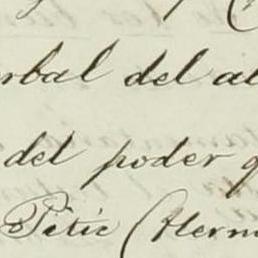 rbal del al
del poder q
Petic (Herm